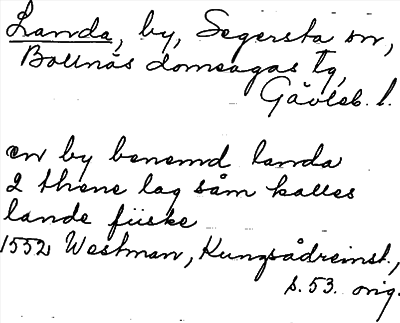 Landa, by, Segersta sn,
Bollnäs domsagas tg,
Gävleb. l.
en by benemd landa
2 thene lag såm kalles
lande fiiske
1552 Westman, Kungsådreinst.,
s. 53. orig.